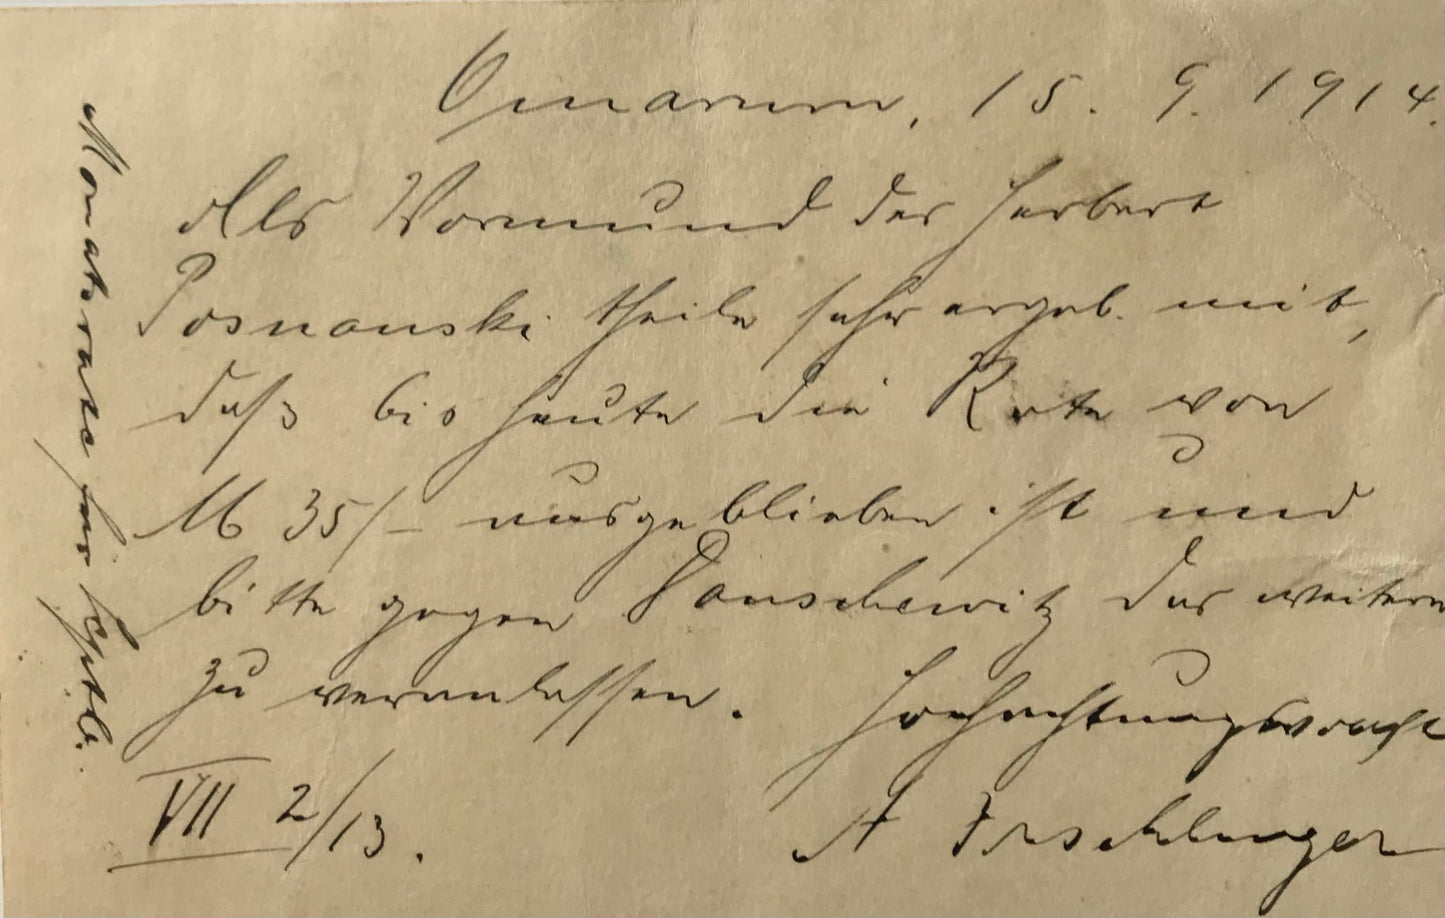 Omarum, 15. 9. 1914.
Als Vormund des Herbert
Posnanski theile sehr ergeb. mit,
daß bis heute die Rate von
M 35/– ausgeblieben ist und
bitte gegen Danschewitz das weitere
zu veranlassen. Hochachtungsvollst
VII 2/13. A
Monatsrate für Septb.